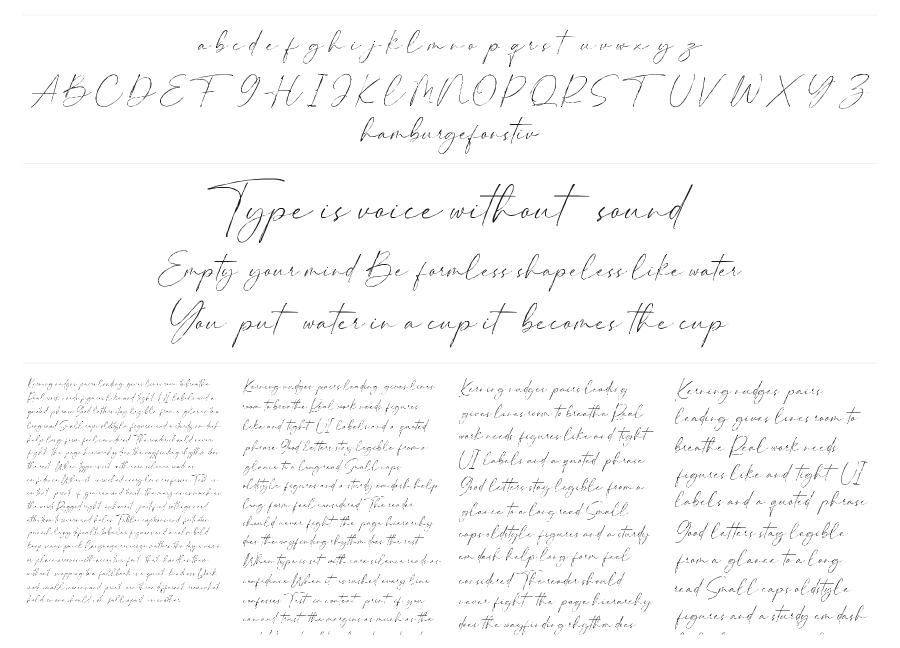 a b c d e f g h i j k l m n o p q r s t u v w x y z
A B C D E F G H I J K L M N O P Q R S T U V W X Y Z
hamburgefonstiv
Type is voice without sound
Empty your mind Be formless shapeless like water
You put water in a cup it becomes the cup
Kerning nudges pairs leading gives lines room to breathe
Real work needs figures like and tight UI labels and a
quoted phrase Good letters stay legible from a glance to a
long read Small caps oldstyle figures and a sturdy em dash
help long form feel considered The reader should never
fight the page hierarchy does the wayfinding rhythm does
the rest When type is set with care silence reads as
confidence When it is rushed every line confesses Test in
context print if you can and trust the margins as much as
Kerning nudges pairs leading gives lines
room to breathe Real work needs figures
like and tight UI labels and a quoted
phrase Good letters stay legible from a
glance to a long read Small caps
oldstyle figures and a sturdy em dash help
long form feel considered The reader
should never fight the page hierarchy
does the wayfinding rhythm does the rest
When type is set with care silence reads as
confidence When it is rushed every line
confesses Test in context print if you
can and trust the margins as much as the
Kerning nudges pairs leading
gives lines room to breathe Real
work needs figures like and tight
UI labels and a quoted phrase
Good letters stay legible from a
glance to a long read Small
caps oldstyle figures and a sturdy
em dash help long form feel
considered The reader should
never fight the page hierarchy
does the wayfinding rhythm does
Kerning nudges pairs
leading gives lines room to
breathe Real work needs
figures like and tight UI
labels and a quoted phrase
Good letters stay legible
from a glance to a long
read Small caps oldstyle
figures and a sturdy em dash